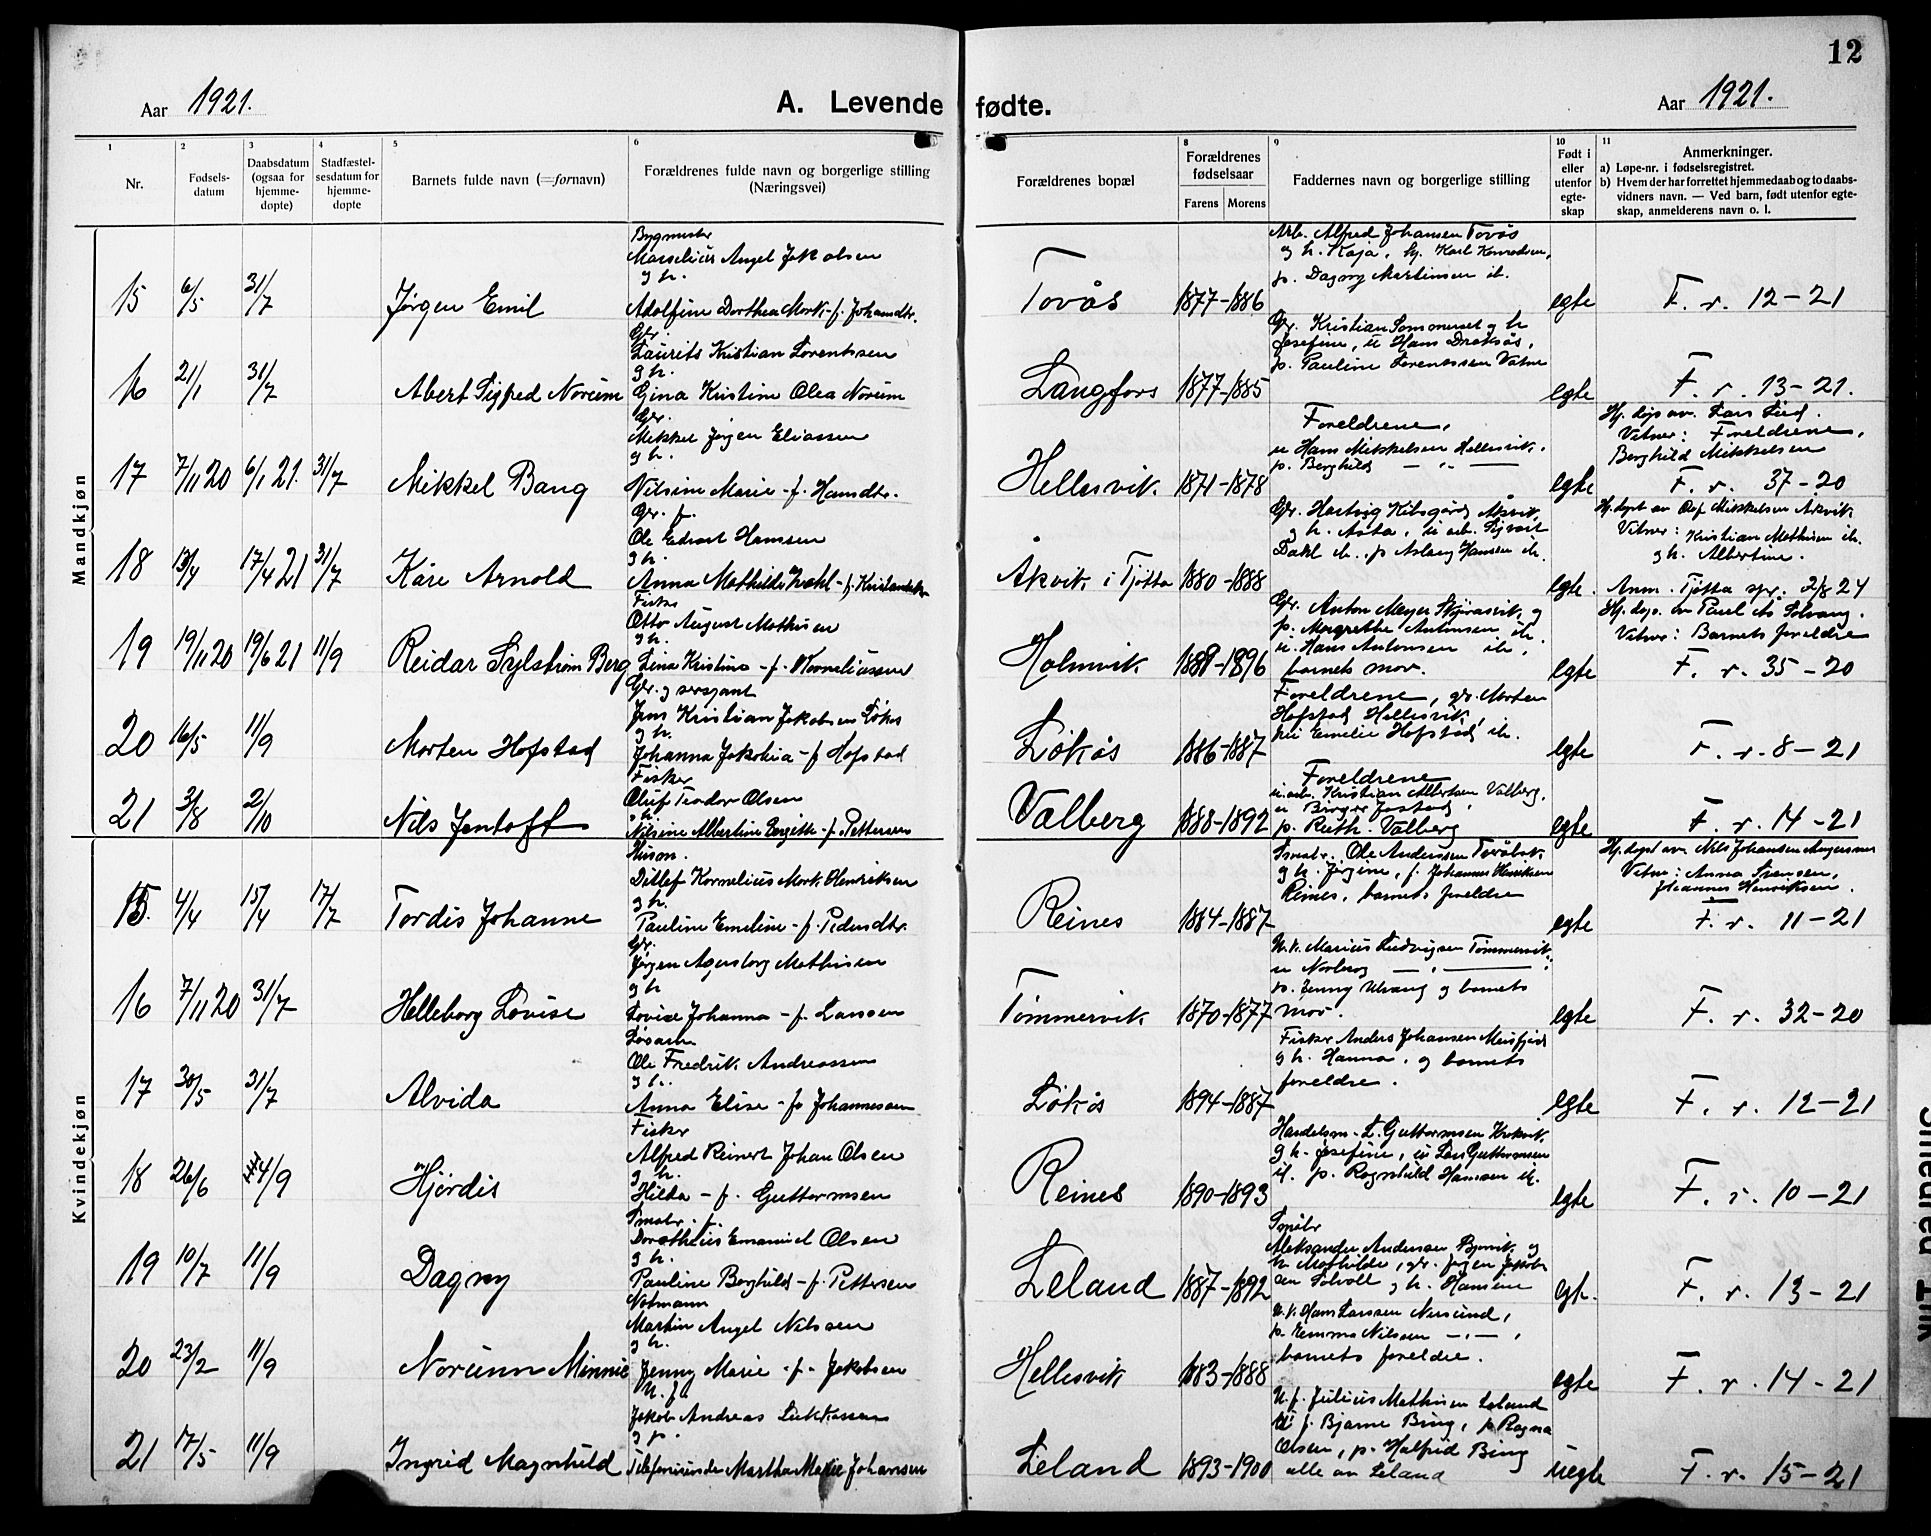 12
Aar 1921.
A. Levende fødte.
Aar 1921.
1
Nr.
2
Fødsels-
datum
3
Daabsdatum
(ogsaa for
hjemme-
døpte)
4
Stadfæstel-
sesdatum for
hjemme-
døpte
5
Barnets fulde navn (=fornavn)
6
Forældrenes fulde navn og borgerlige stilling
(Næringsvei)
Forældrenes bopæl
8
Forældrenes
fødselsaar
Farens Morens
9
Faddernes navn og borgerlig stilling
10
Født i
eller
utenfor
egte-
skap
11
Anmerkninger.
a) Løpe-nr. i fødselsregistret.
b) Hvem der har forrettet hjemmedaab og to daabs-
vidners navn. — Ved barn, født utenfor egte-
skap, anmelderens navn o. l.
Mandkjøn
15 6/5 31/7 Jørgen Emil
Marselius Angel Jakobsen
g h.
Adolfine Dorthea Mork. - f. Johansdtr.
Tovås 1877-1886
Arb. Alfred Johansen Tovås
g h. Kaja,
p. Dagny Martinsen ib.
egte F. r. 12-21
16 21/1 31/7 Abert Sigfred Norum
Gbr.
Laurits Kristian Lorentsen
g h.
Gina Kristine Olea Norum
Langfors 1877-1885
Gbr. Kristian Sommerset g h
Josefine, u Hans
p. Pauline Lorentssen
egte F. r. 13-21.
17 7/11 20 6/1 21. 31/7 Mikkel Bang
Gbr.
Mikkel Jørgen Eliassen
g h.
Nilsine Marie - f. Hansdtr.
Hellesvik. 1871-1878
Foreldrene,
u Hans Mikkelsen Hellesvik.
p. Borghild — „ —
egte
Hj. døp av. Lars Lind.
Vitner: Foreldrene,
Borghild Mikkelsen
F. r. 37-20
18 13/4 17/4 21 31/7 Kåre Arnold
Gbr. f.
Ole Edvart Hanssen
g h.
Anna Mathilde
Åkvik i Tjøtta 1880-1888
Gbr. Hartvig Åkvik
g h. Asta, u arb. Sigvart
Dahl ib., p Aslaug Hansen ib.
egte.
Hj. døpt av Mikkelsen Åkvik
Vitner: Kristian Mathisen ib.
g h. Albertine.
Anm. Tjøtta spr. 2/8 24
19 19/11 20 19/6 21 11/9 Reidar Sylstrøm Berg
Fisker
Otto August Mathisen
g h.
Lina Kristine - f. Korneliussen
Holmvik 1889-1896
Gbr. Anton Meyer g
p. Margrethe Antonsen ib.
u. Hans Antonsen ib,
barnets mor.
egte
Hj. døp. av Paul As Solvang.
Vitner: Barnets foreldre
F. r. 35-20
20 16/5 11/9 Morten Hofstad
Gbr. g sersjant
Jens Kristian Jakobsen Løkås
g h.
Johanna Jakobia - f Hofstad
Løkås 1886-1887
Foreldrene, gbr. Morten
Hofstad Hellesvik,
Emelie Hofstad ib.
egte F. r. 8-21
21 3/8 2/10 Nils Jentoft
Fisker
Oluf Teodor Olsen
g h.
Nilsine Albertine Bergitte - f. Pettersen
Valberg 1888-1892
Foreldrene
u. arb. Kristian Albertsen Valberg,
u Birger
p. Ruth. Valberg
egte F. r. 14-21
Kvindekjøn
15. 4/4 15/4 17/7 Tordis Johanne
Husm.
Ditlef Kornelius Mork. Henriksen
g h.
Pauline Emeline - f. Pedersdtr.
Reines 1864-1887
Småbr. Ole Anderssen
g h. Jørgine, f. Johannes Henriksen
Reines, barnets foreldre
egte
Hj. døpt av Nils Johansen
Vitner: Anna
Johannes Henriksen.
F. r. 11-21
16 7/11 20 31/7 Helleborg Lovise
Gbr.
Jørgen Agersborg Mathisen
g h
Lovise Johanna - f. Larssen
Tømmervik 1870-1877
U. k. Marius Ludvigsen Tømmervik
u Norberg — „ —
p. Jenny Ulvang g barnets
mor.
egte F. r. 32-20
17 30/5 31/7 Alvida
Løsarb.
Ole Fredrik Andreassen
g h.
Anna Elise - f. Johannessen
Løkås 1894-1887
Fisker Anders Johansen Meisfjord
g h. Hanna, g barnets
foreldre.
egte F. r. 12-21
18 26/6 4/9 Hjørdis
Fisker
Alfred Reinert Johan Olsen
g h.
Hilda - f. Guttormsen
Reines 1890-1893
Handelsm. L. Guttormsen
g h. Josefine, u Lars Guttormsen
ib. p. Ragnhild Hansen ib.
egte F. r. 10-21
19 10/7 11/9 Dagny
Småbr. f.
Dorotheus Emanuel Olsen
g h.
Pauline Borghild - f. Pettersen
Leland 1887-1892
Småbr
Aleksander Andersen g
h. Mathilde, gbr. Jørgen Jakob-
sen Solvoll g h. Hansine
egt. F. r. 13-21
20 23/2 11/9 Norunn Minnie
Notmann
Martin Angel Nilssen
g h.
Jenny Marie - f. Jakobsen
Hellesvik 1883-1888
U. k. Hans Larssen
p. Emma Nilsen — „ — ,
barnets foreldre.
egte F. r. 14-21
21 17/5 11/9 Ingrid Magnhild
U. f
Jakob Andreas Lukkassen
g p.
Martha Marie Johansen
Leland 1893-1900
U. f. Julius Mathisen Leland
U f. Bjarne Bing, p Ragna
Olsen, p. Halfrid Bing
alle av Leland
uegte F. r. 15-21